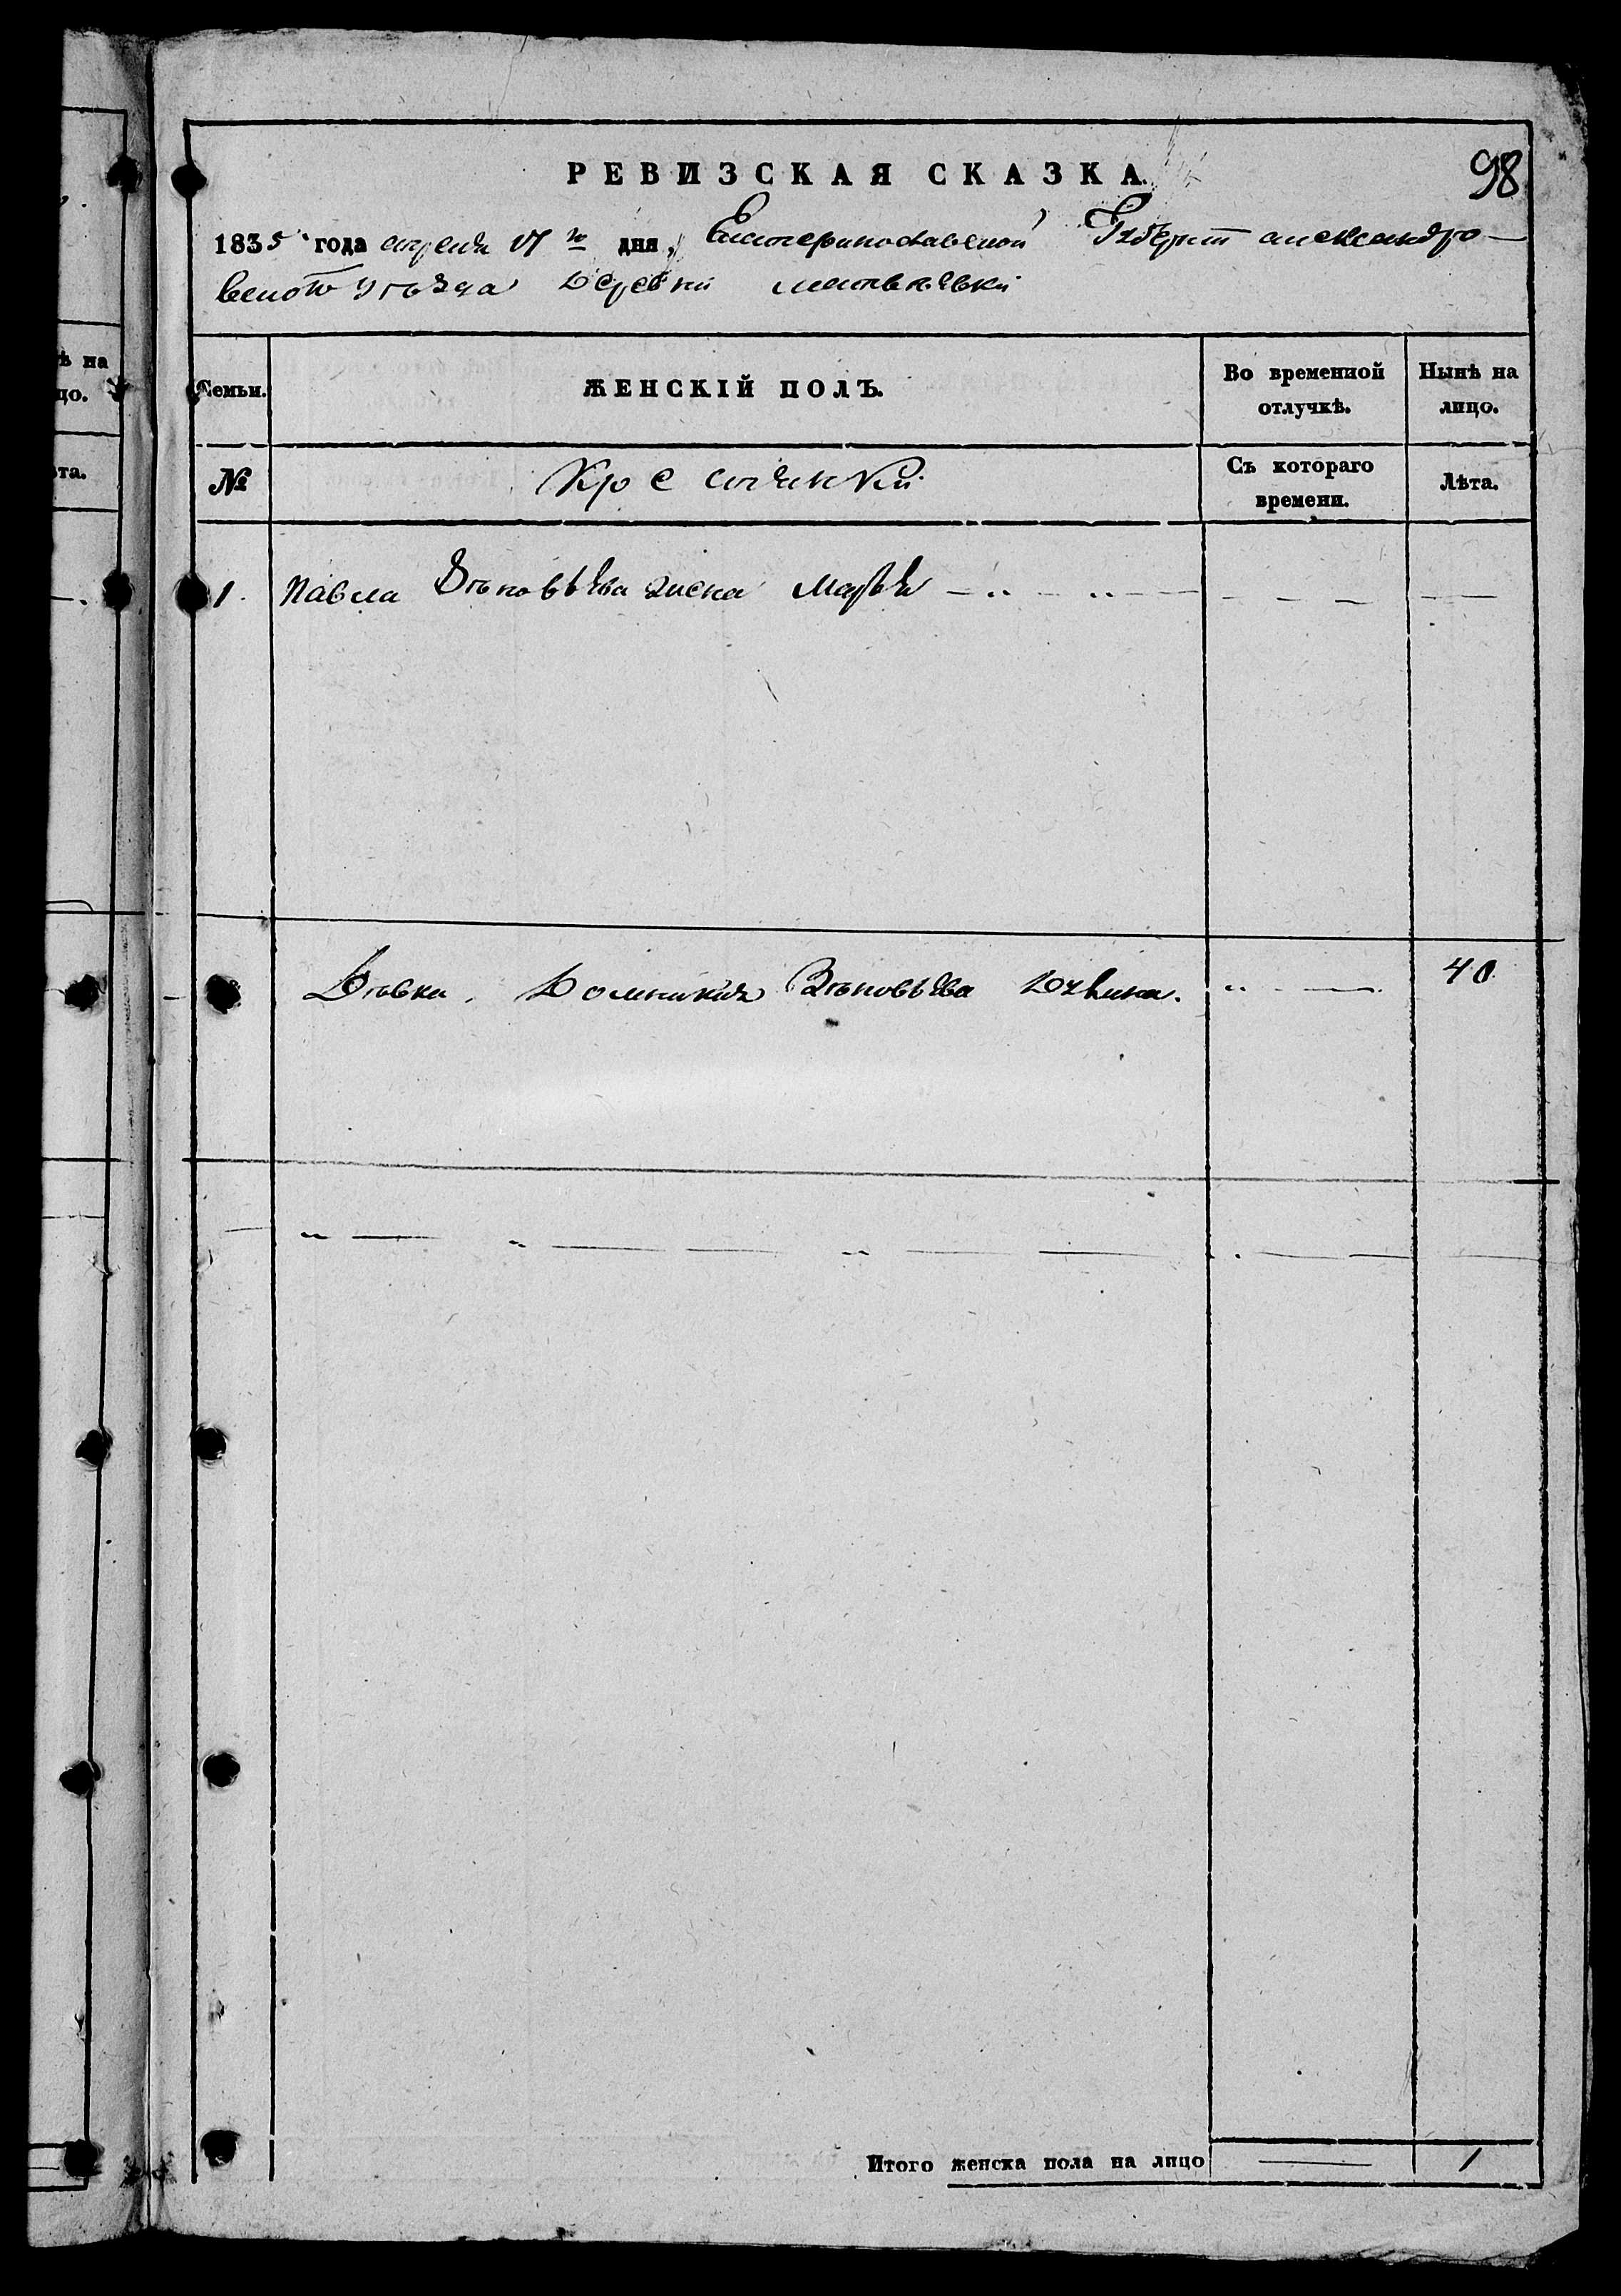 РЕВИЗСКАЯ СКАЗКА.
98
1835 года апреля дня, Екатеринославской Губернии александро-
вского уѣзда деревни
ѣ на
цо.
та.
Семьи.
ЖЕНСКІЙ ПОЛЪ.
Во временной отлучкѣ.
Нынѣ на лицо.
№
Крестьянки
Съ котораго времени.
Лѣта.
1. Павла Зѣновьева жена Марья
Дѣвка Домникия Зѣновьева 40
Итого женска пола на лицо 1